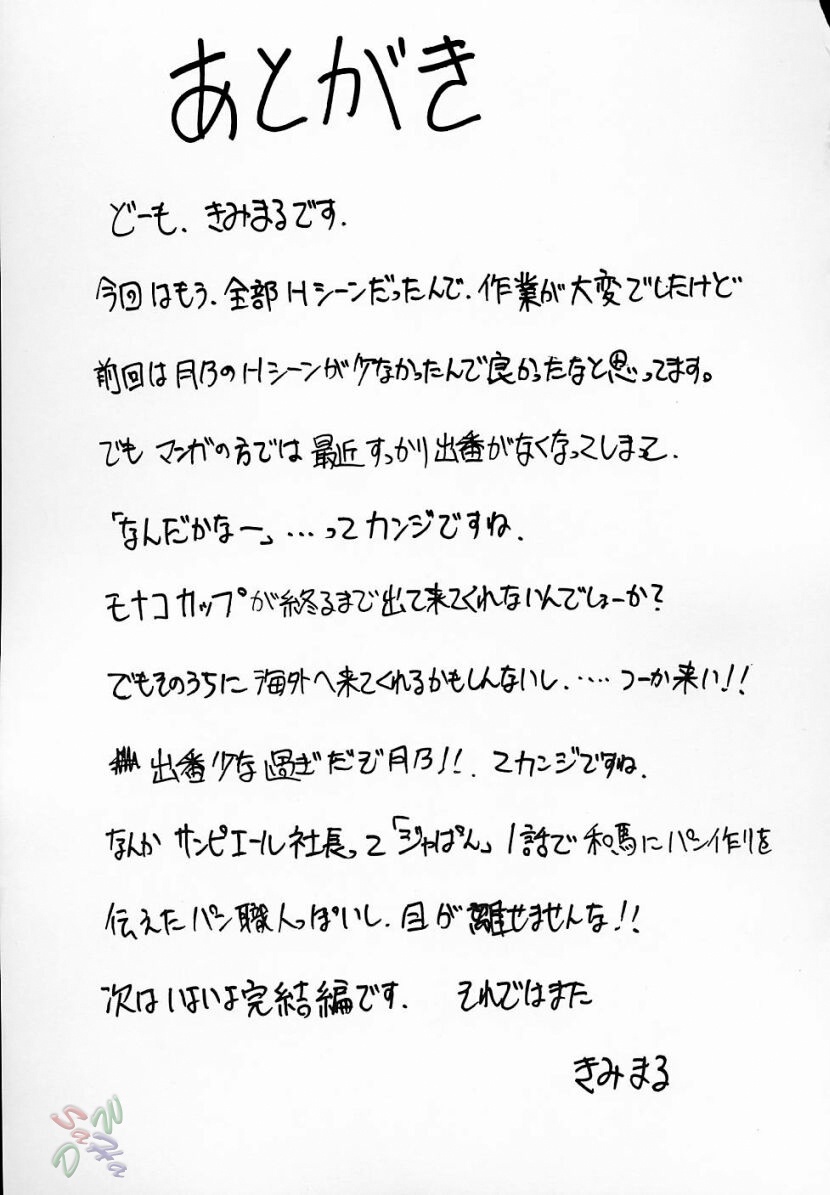 あとがき
どーも、きみまるです.
今回はもう、全部Hシーンだったんで、作業が大変でしたけど
前回は月乃のHシーンが少なかったんで良かったなと思ってます。
でもマンガの方では最近すっかり出番がなくなってしまって、
「なんだかなー」…ってカンジですね、
モナコカップが終るまで出て来てくれないんでしょーか?
でもそのうちに海外へ来てくれるかもしんないし、‥‥つーか来い!!
出番少な過ぎだぞ月乃!!、てカンジですね、
なんかサンピエール社長って「ジャぱん」1話で和馬にパン作りを
伝えたパン職人っぽいし、目が離せませんな!!
次はいよいよ完結編です. それではまた
きみまる